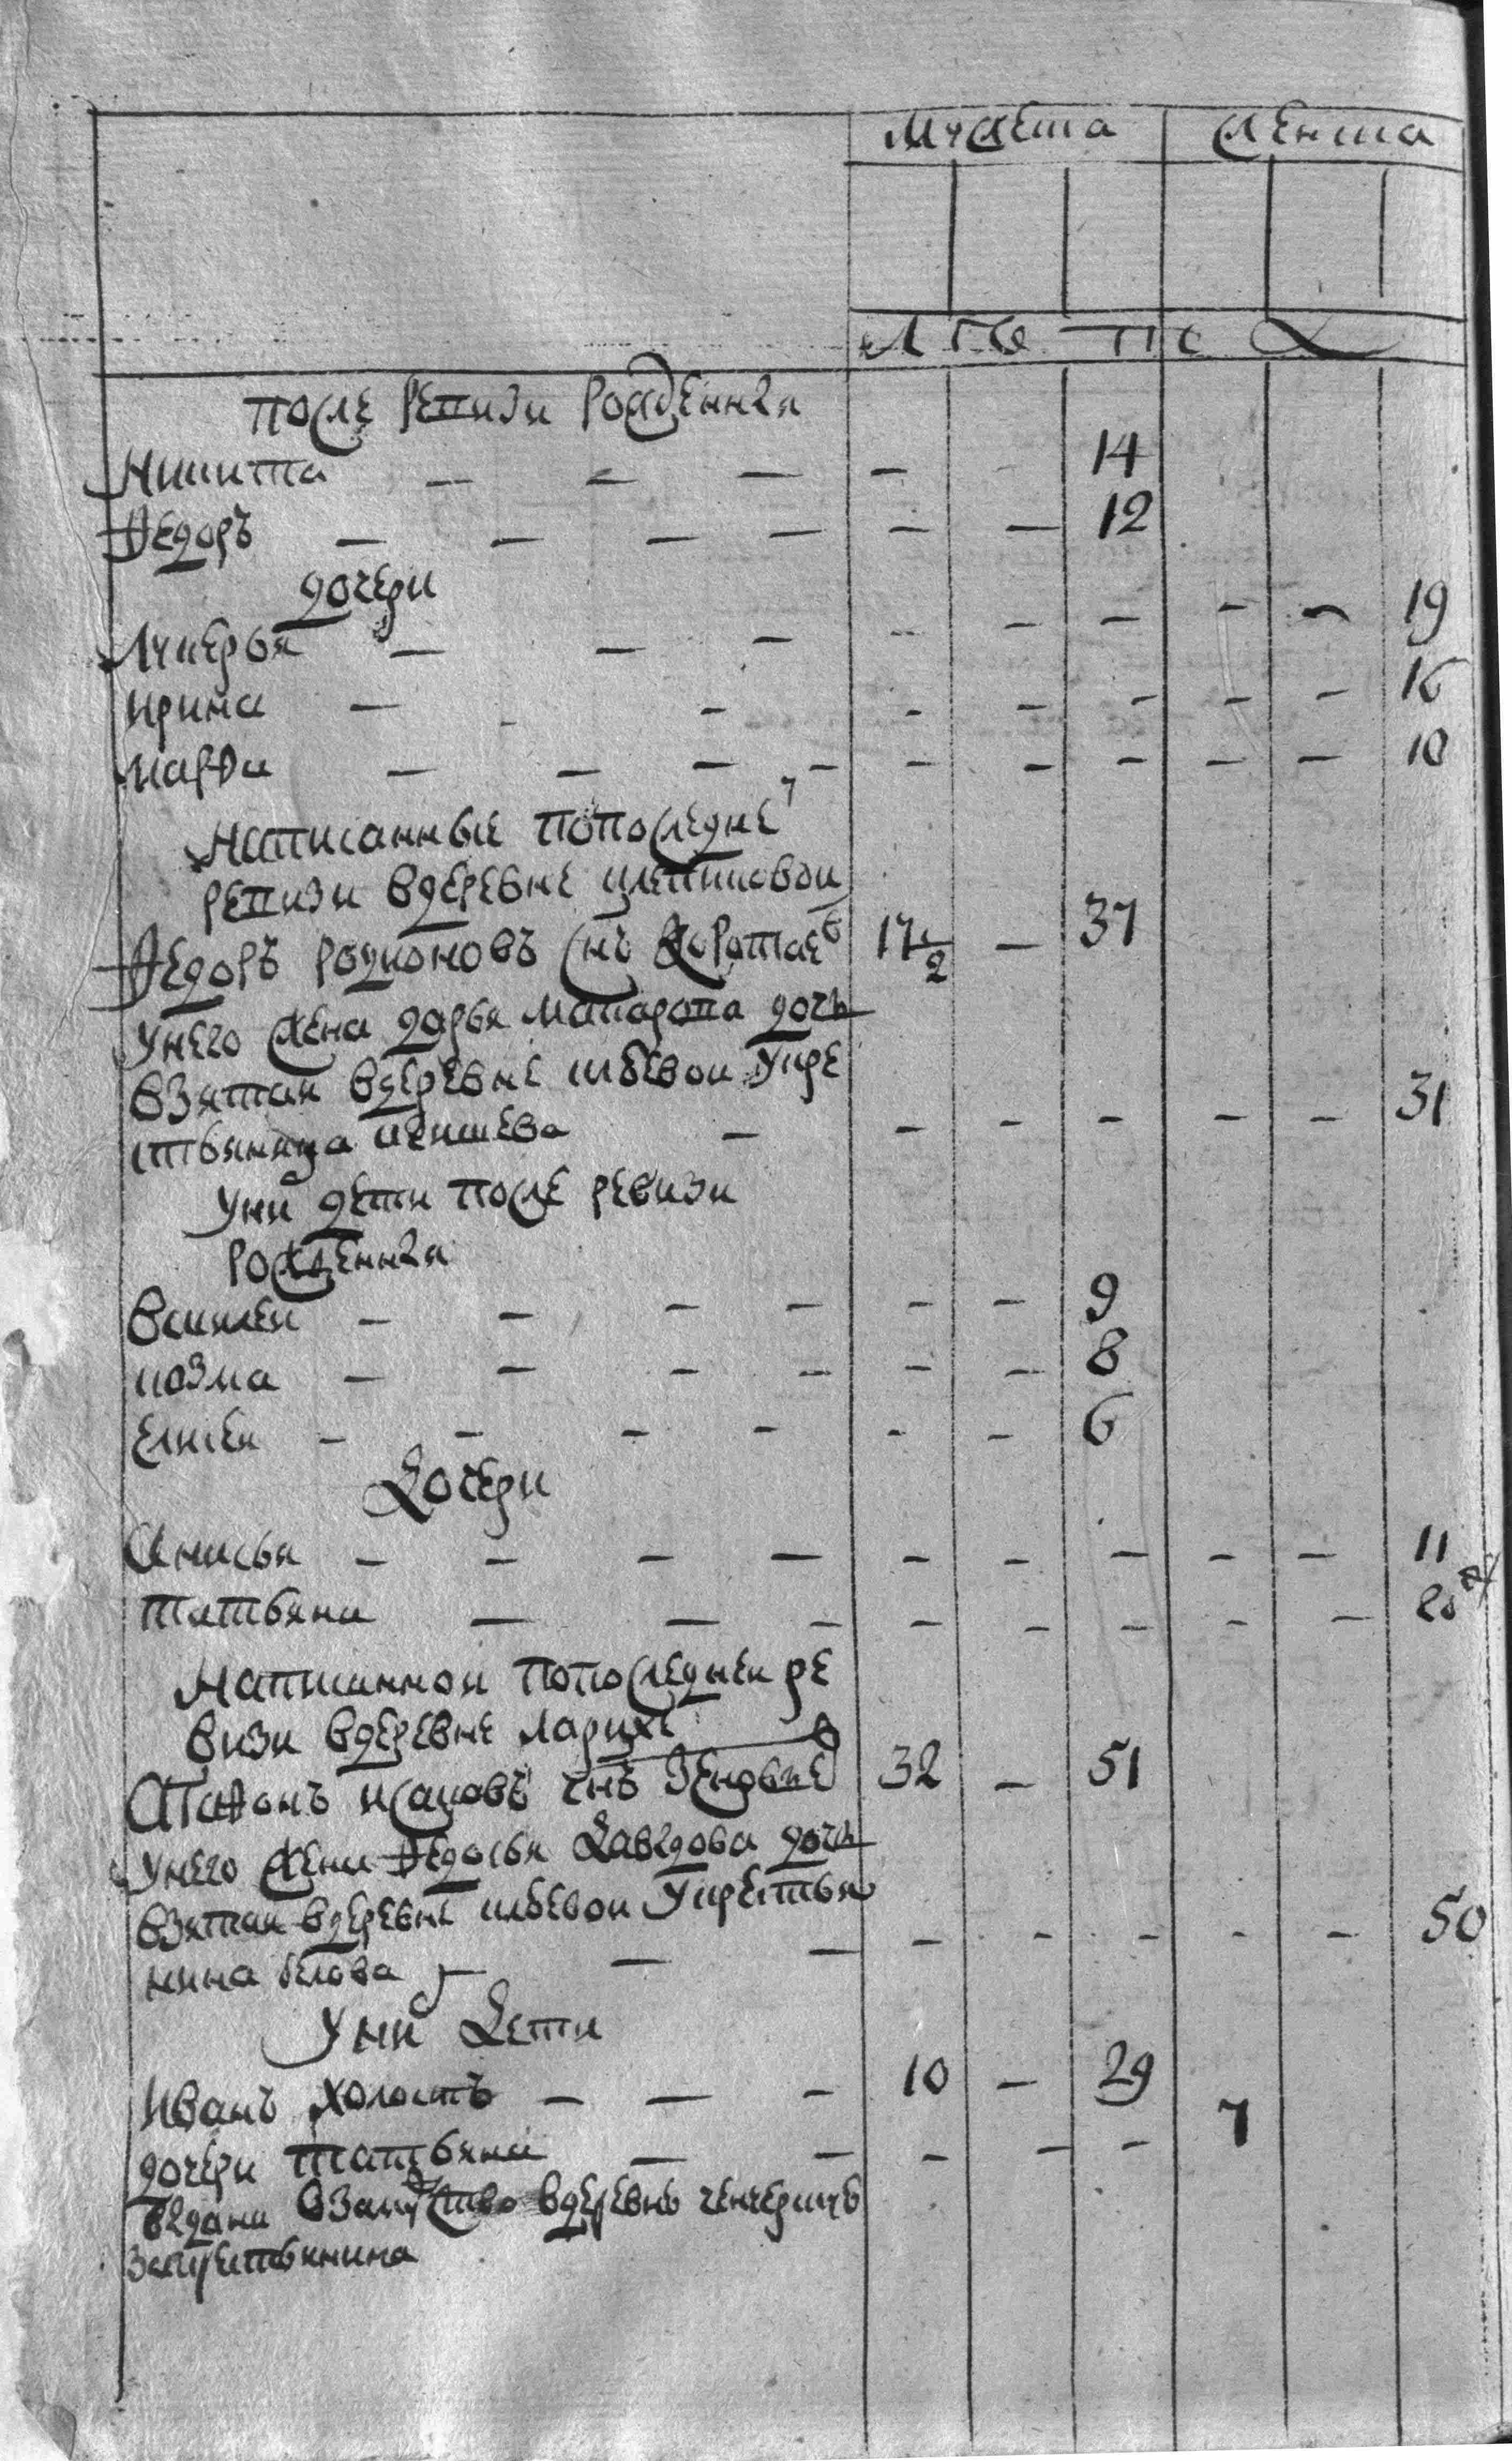 мужеска женска
лѣта
после ревизи рожденныя
Никита — — — — — 14
Ѳедоръ — — — — — — 12
дочери
Лукерья — — — — — — — — 19
ирина — — — — — — — — 16
марѳа — — — — — — — — — 10
Написанные попоследней
ревизи вдеревне
Ѳедоръ родионовъ снъ Коротаев 17 1/2 — 37
унего жена дарья Макарова дочь
взятая вдеревне шбевои укре
стьянина — — — — — — 31
уни дети после ревизи
рожденныя
Василеи — — — — — — 9
козма — — — — — — 8
елисеи — — — — — — 6
Дочери
Анисья — — — — — — — — — 11
татьяна — — — — — — — — 20
Написаннои попоследнеи ре
визи вдеревне ларихе
Агаѳонъ исаковъ снъ Зеновьев 32 — 51
унего жена Ѳедосья Давыдова дочь
взятая вдеревне шбевои укрестья
нина белова — — — — — — — 50
уни Дети
Иванъ холостъ — — — 10 — 29
дочери татьяна — — — — — 7
выдана взамужство вдеревню
закрестьянина